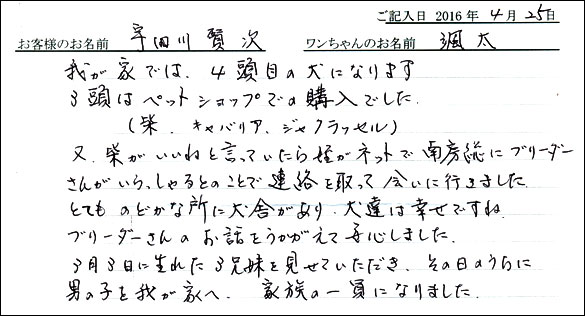 ご記入日 2016年4月25日
お客様のお名前 宇田川賢次 ワンちゃんのお名前 颯太
我が家では、4頭目の犬になります
3頭はペットショップでの購入でした。
(柴、キャバリア、ジャクラッセル)
又、柴がいいねと言っていたら姪がネットで南房総にブリーダー
さんがいらっしゃるとのことで連絡を取って会いに行きました
とても のどかな所に犬舎があり、犬達は幸せですね
ブリーダーさんの お話をうかがえて安心しました。
3月3日に生れた3兄妹を見せていただき、その日のうちに
男の子を我が家へ、 家族の一員になりました。